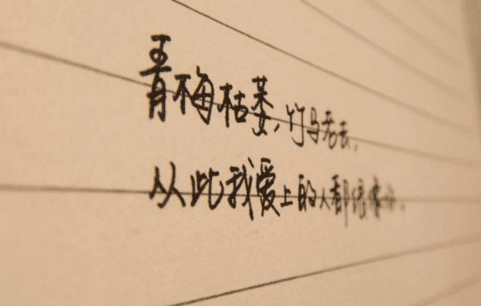 青梅枯萎,竹马老去,
从此我爱上的人都很像你.